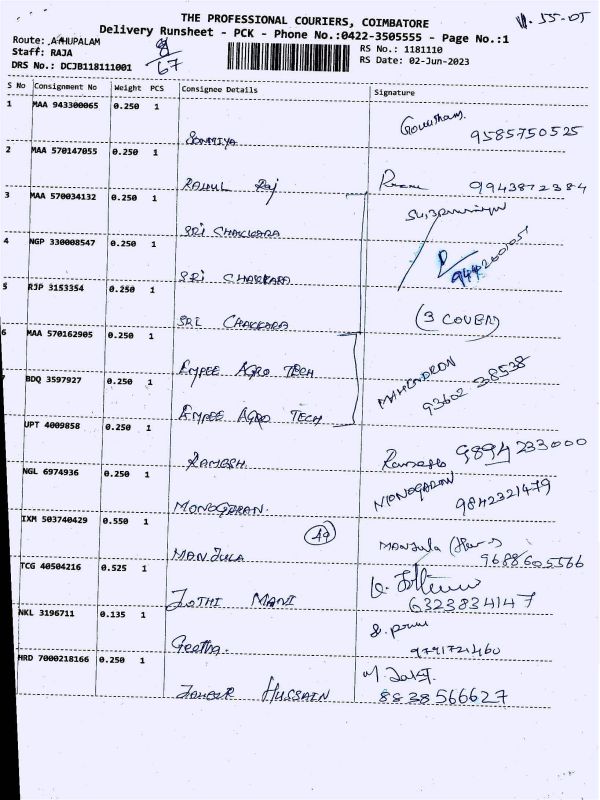 THE PROFESSIONAL COURIERS, COIMBATORE
Delivery Runsheet - PCK - Phone No.:0422-3505555 - Page No.:1
Route: ATHUPALAM
Staff: RAJA
DRS No.: DCJB118111001
67
RS No.: 1181110
RS Date: 02-Jun-2023
S No Consignment No Weight PCS Consignee Details Signature
1 MAA 943300065 0.250 1
SOWMIYA Gowtham. 9585750525
2 MAA 570147055 0.250 1
RAHUL Raj 9943872384
3 MAA 570034132 0.250 1
SRI CHAKKARA
4 NGP 330008547 0.250 1
SRI CHAKKARA
5 RJP 3153354 0.250 1
SRI CHAKKARA (3 COVER)
6 MAA 570162905 0.250 1
EMPEE AGRO TECH MAHENDRON
BDQ 3597927 0.250 1
EMPEE AGRO TECH 93602 38538
UPT 4009858 0.250 1
RAMESH 9894233000
NGL 6974936 0.250 1
MONOGARAN. 9842321479
IXM 503740429 0.550 1
MANJULA Manjula 9688605566
TCG 40504216 0.525 1
JOTHI MANI 6323834147
NKL 3196711 0.135 1
Geetha. 9791721460
HRD 7000218166 0.250 1
HUSSAIN 8838566627